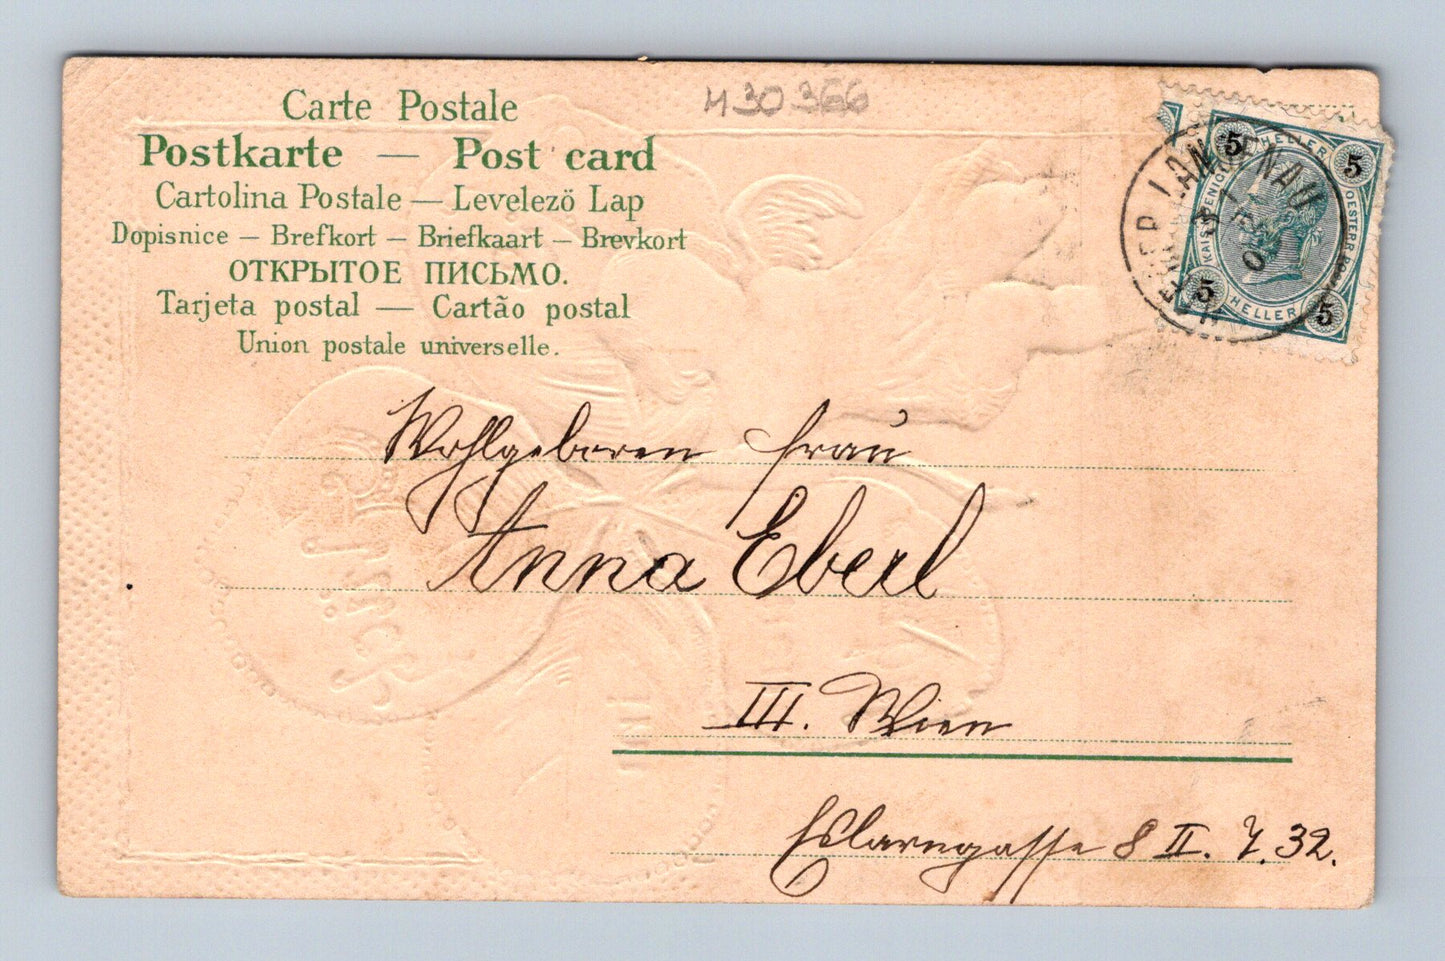 Carte Postale
Postkarte — Post card
Cartolina Postale — Levelezö Lap
Dopisnice — Brefkort — Briefkaart — Brevkort
ОТКРЫТОЕ ПИСЬМО.
Tarjeta postal — Cartão postal
Union postale universelle.
430366
5 HELLER 5
5 HELLER 5
LANGENAU
Wohlgeboren Frau
Anna Eberl
III. Wien
Eslarngasse 8 II. T. 32.